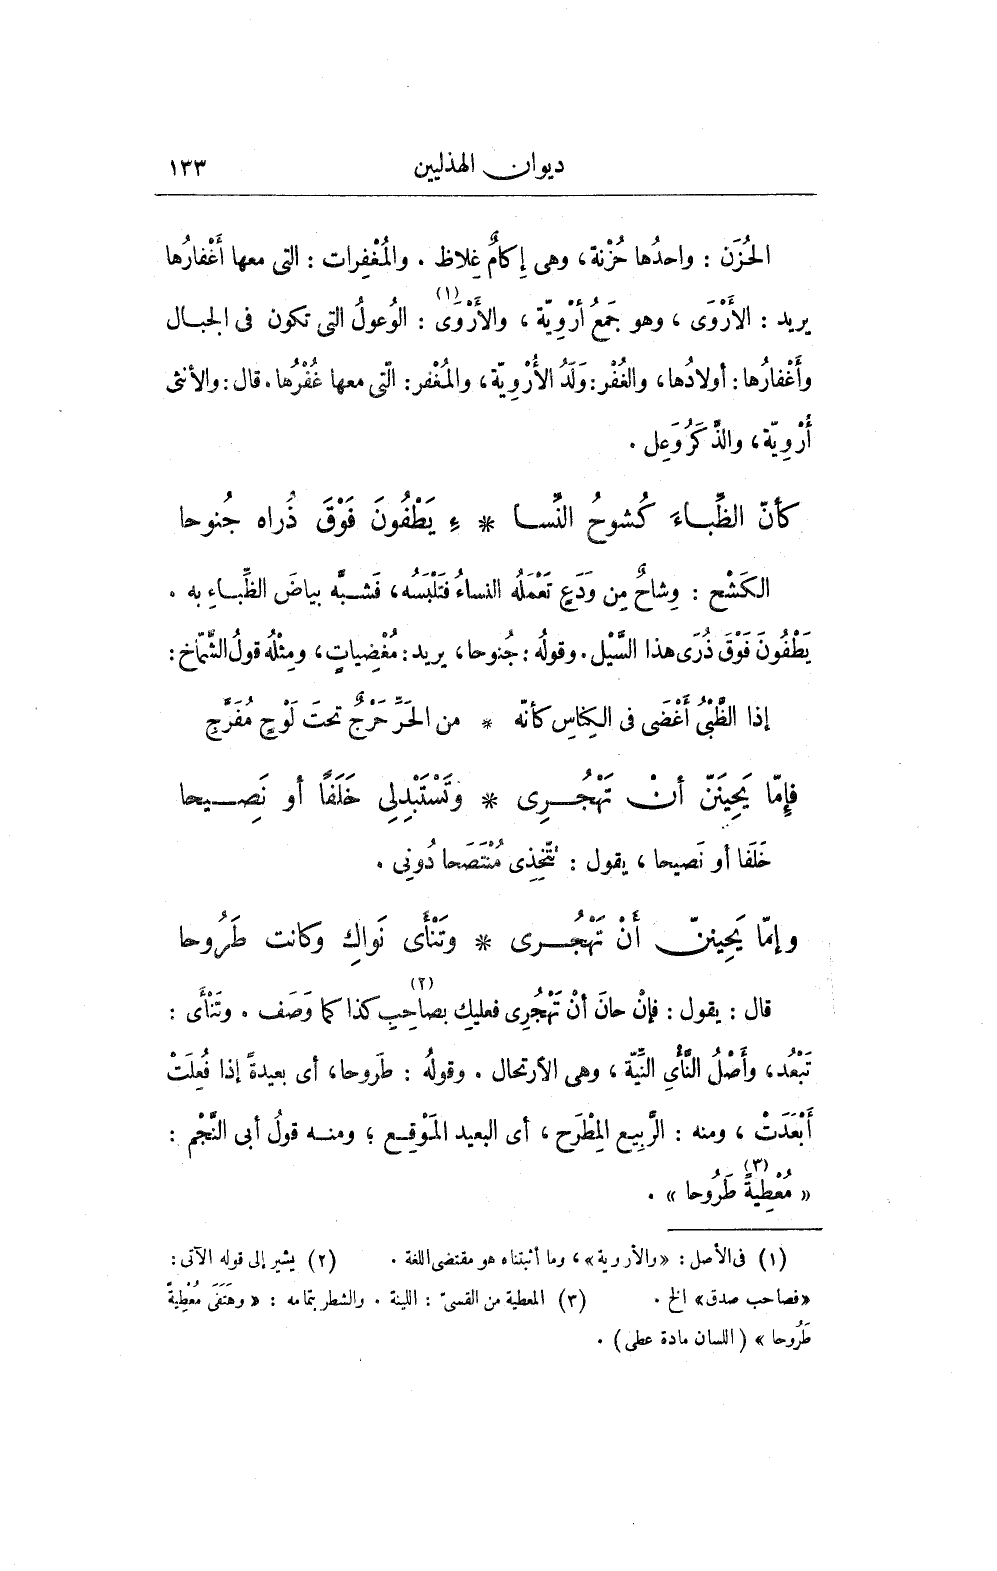 ديوان الهذليين ١٣٣
الحُزَن : واحدُها حُزْنة، وهى إكامٌ غِلاظ . والمُغْفِرات : التى معها أَغْفارُها
يريد : الأَرْوَى ، وهو جَمعُ أرْوِيّة ، والأَرْوَى (١) : الوُعولُ التى تكون فى الجبال
وأَغْفارُها : أولادُها، والغُفْر : وَلَدُ الأُرْوِيّة، والمُغْفر : الّتى معها غُفْرُها . قال : والأنثى
أُرْوِيّة، والذَّكَرُ وَعِل .
كأنّ الظِّباءَ كُشوحُ النِّسا * ءِ يَطْفُونَ فَوْقَ ذُراه جُنوحا
الكَشْح : وِشاحٌ مِن وَدَعٍ تَعْمَلُه النساءُ فتَلْبَسُه، فَشبَّه بياضَ الظِّباءِ به .
يَطْفُونَ فَوْقَ ذُرَى هذا السَّيْل . وقولُه : جُنوحا، يريد : مُغْضِياتٍ، ومِثْلُه قولُ الشَّمّاخ :
إذا الظَّبْىُ أَغْضَى فى الكِناسِ كأنّه * من الحَرِّ حَرْجٌ تحتَ لَوْحٍ مُفَرَّجِ
فإِمّا يَحِينَنّ أنْ تَهْجُرِى * وتَسْتَبْدِلِى خَلَفًا أو نَصِيحا
خَلَفا أو نَصيحا ، يقول : تتّخِذى مُنْتَصَحا دُونِى .
وإمّا يَحِيننّ أَنْ تَهْجُرى * وتَنْأَى نَواكِ وكانت طَرُوحا
قال : يقول : فإنْ حانَ أنْ تَهْجُرِى فعليكِ بصاحِبٍ (٢) كذا كما وَصَف . وتَنْأَى :
تَبْعُد، وأَصْلُ النَّأْىِ النِّيّة ، وهى الأرتحال . وقولُه : طَروحا، أى بعيدةً إذا فُعِلَتْ
أَبْعَدَتْ ، ومنه : الرَّبِيع المِطْرَح ، أى البعيد المَوْقِع ؛ ومنه قولُ أبى النَّجْم :
« مُعْطِيةً (٣) طَرُوحا » .
(١) فى الأصل : «والأروية»، وما أثبتناه هو مقتضى اللغة . (٢) يشير إلى قوله الآتى :
«فصاحب صدق» الخ . (٣) المعطية من القسىّ : اللينة . والشطر بتمامه : « وهَتَفَى مُعْطِيةً
طَرُوحا » (اللسان مادة عطى) .